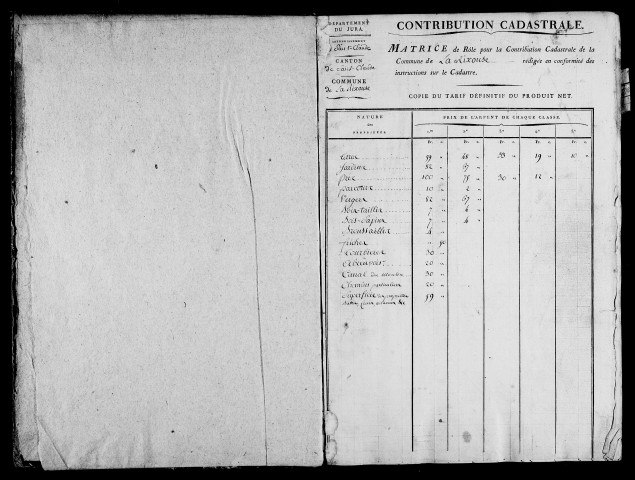 DÉPARTEMENT
DU JURA.
CANTON
de Saint-Claude
COMMUNE
de La Rixouse
CONTRIBUTION CADASTRALE.
MATRICE de Rôle pour la Contribution Cadastrale de la
Commune de La Rixouse rédigée en conformité des
instructions sur le Cadastre.
COPIE DU TARIF DÉFINITIF DU PRODUIT NET.
NATURE
des
PRIX DE L'ARPENT DE CHAQUE CLASSE
1re 2e 3e 4e 5e
Fr. Fr. Fr. Fr. Fr.
Terre 59 " 48 " 33 " 19 " 10 "
Jardins 82 " 67 "
Prés 100 " 75 " 30 " 12 "
Parcours 10 " 2 "
Vergers 82 " 67 "
Bois-taillis 7 " 4 "
Bois-Sapins 7 " 4 "
Broussailles 4 "
friches " 50
Tourbières 30 "
Abreuvoirs 20 "
Canal 30 "
Chemins particuliers 20 "
Superficie des 59 "